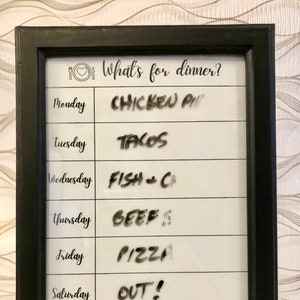 What's for dinner?
Monday CHICKEN
Tuesday TACOS
Wednesday FISH +
Thursday BEEF
Friday PIZZA
Saturday OUT!